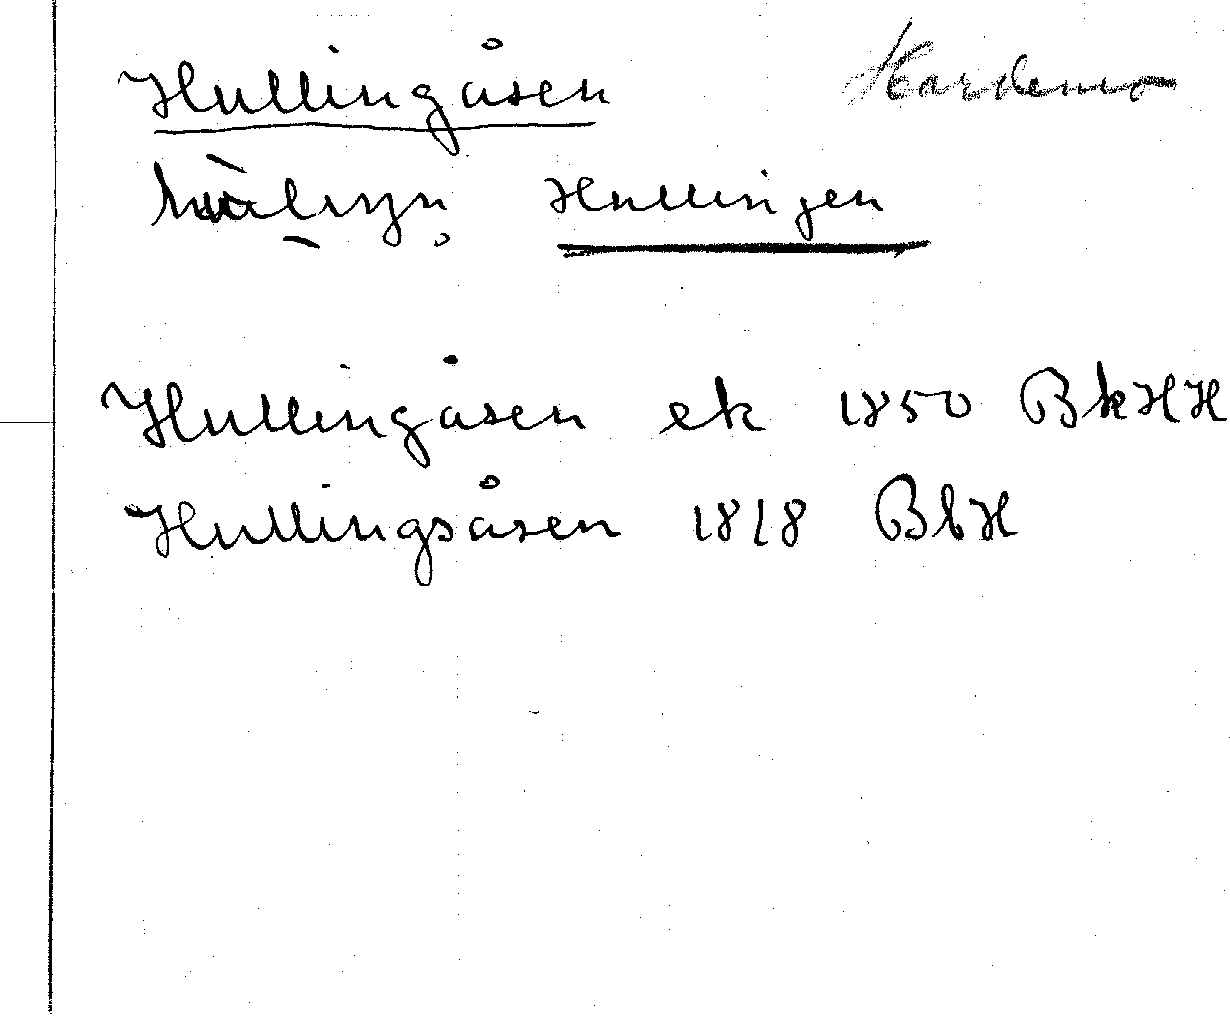 Hullingåsen Hardemo
Hullingen
Hullingåsen ek 1850 BkHH
Hullingsåsen 1818 BbH